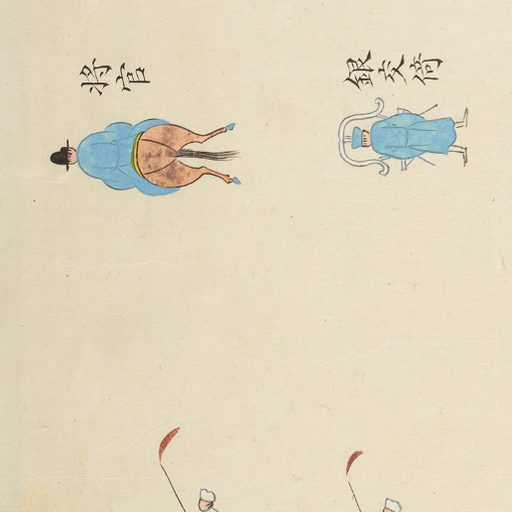 將官
銀交倚